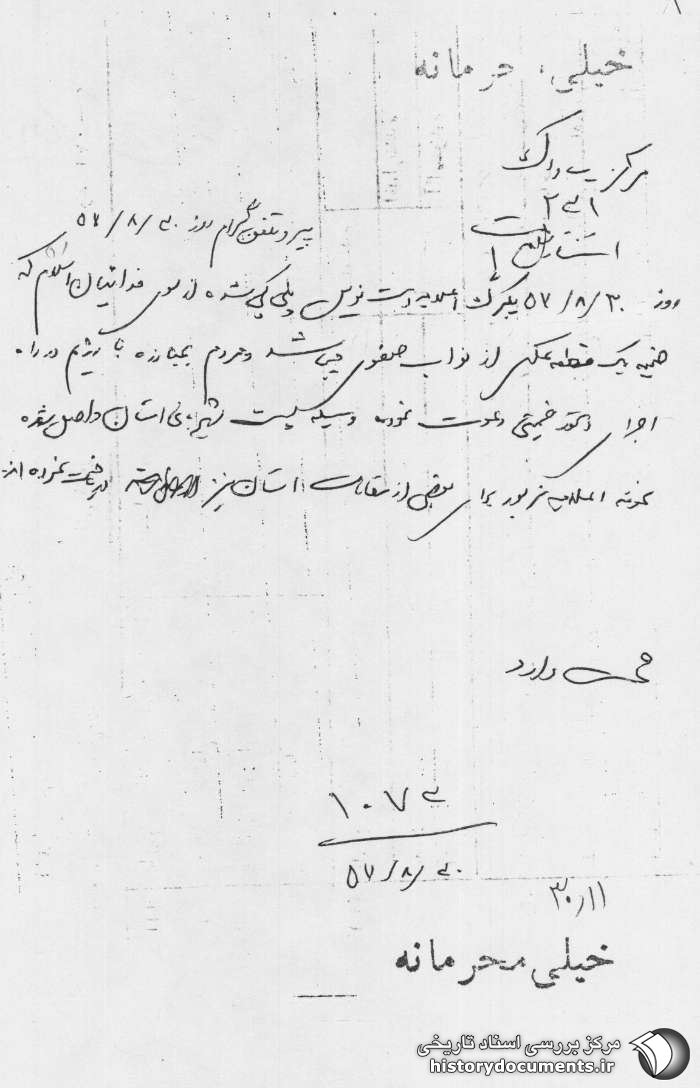 خیلی محرمانه
مرکز ساواک
۲۳۱
استاندار
پیرو تلفن گرام روز ۳۰/۸/۵۷
روز ۳۰/۸/۵۷ یکبرگ اعلامیه دست نویس پلی کپی شده از سوی فدائیان اسلام که
ضمیمه یک قطعه عکس از نواب صفوی میباشد و مردم بمبارزه با رژیم در راه
اجرای دستور خمینی دعوت نموده وسیله پست استان واصل شده
نمونه اعلامیه مزبور برای بعضی از مقامات استان نیز دریافت نموده اند
دارد
۱۰۷۳
۳۰/۸/۵۷
۳۰/۱۱
خیلی محرمانه
مرکز بررسی اسناد تاریخی
historydocuments.ir